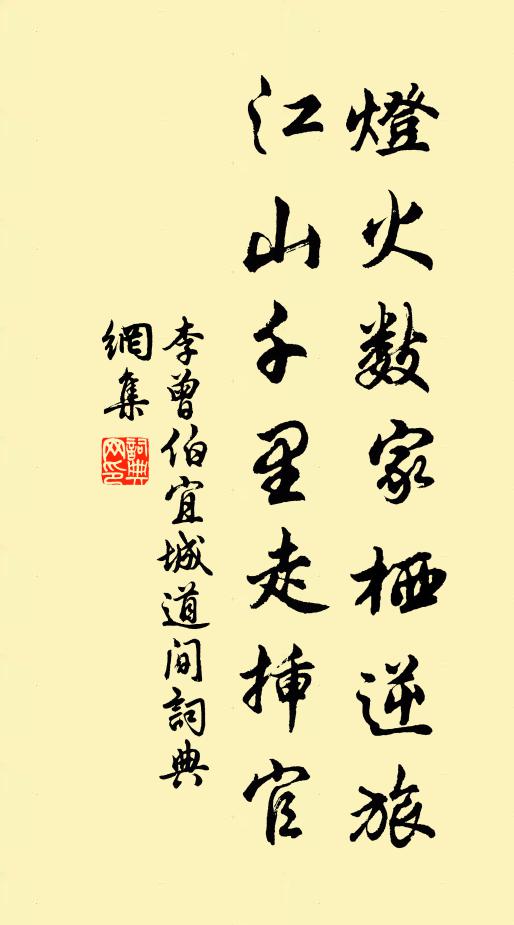 燈火数家栖逆旅
江山千里走揷官
李曾伯宜城道间詞典
網集
詞典网印